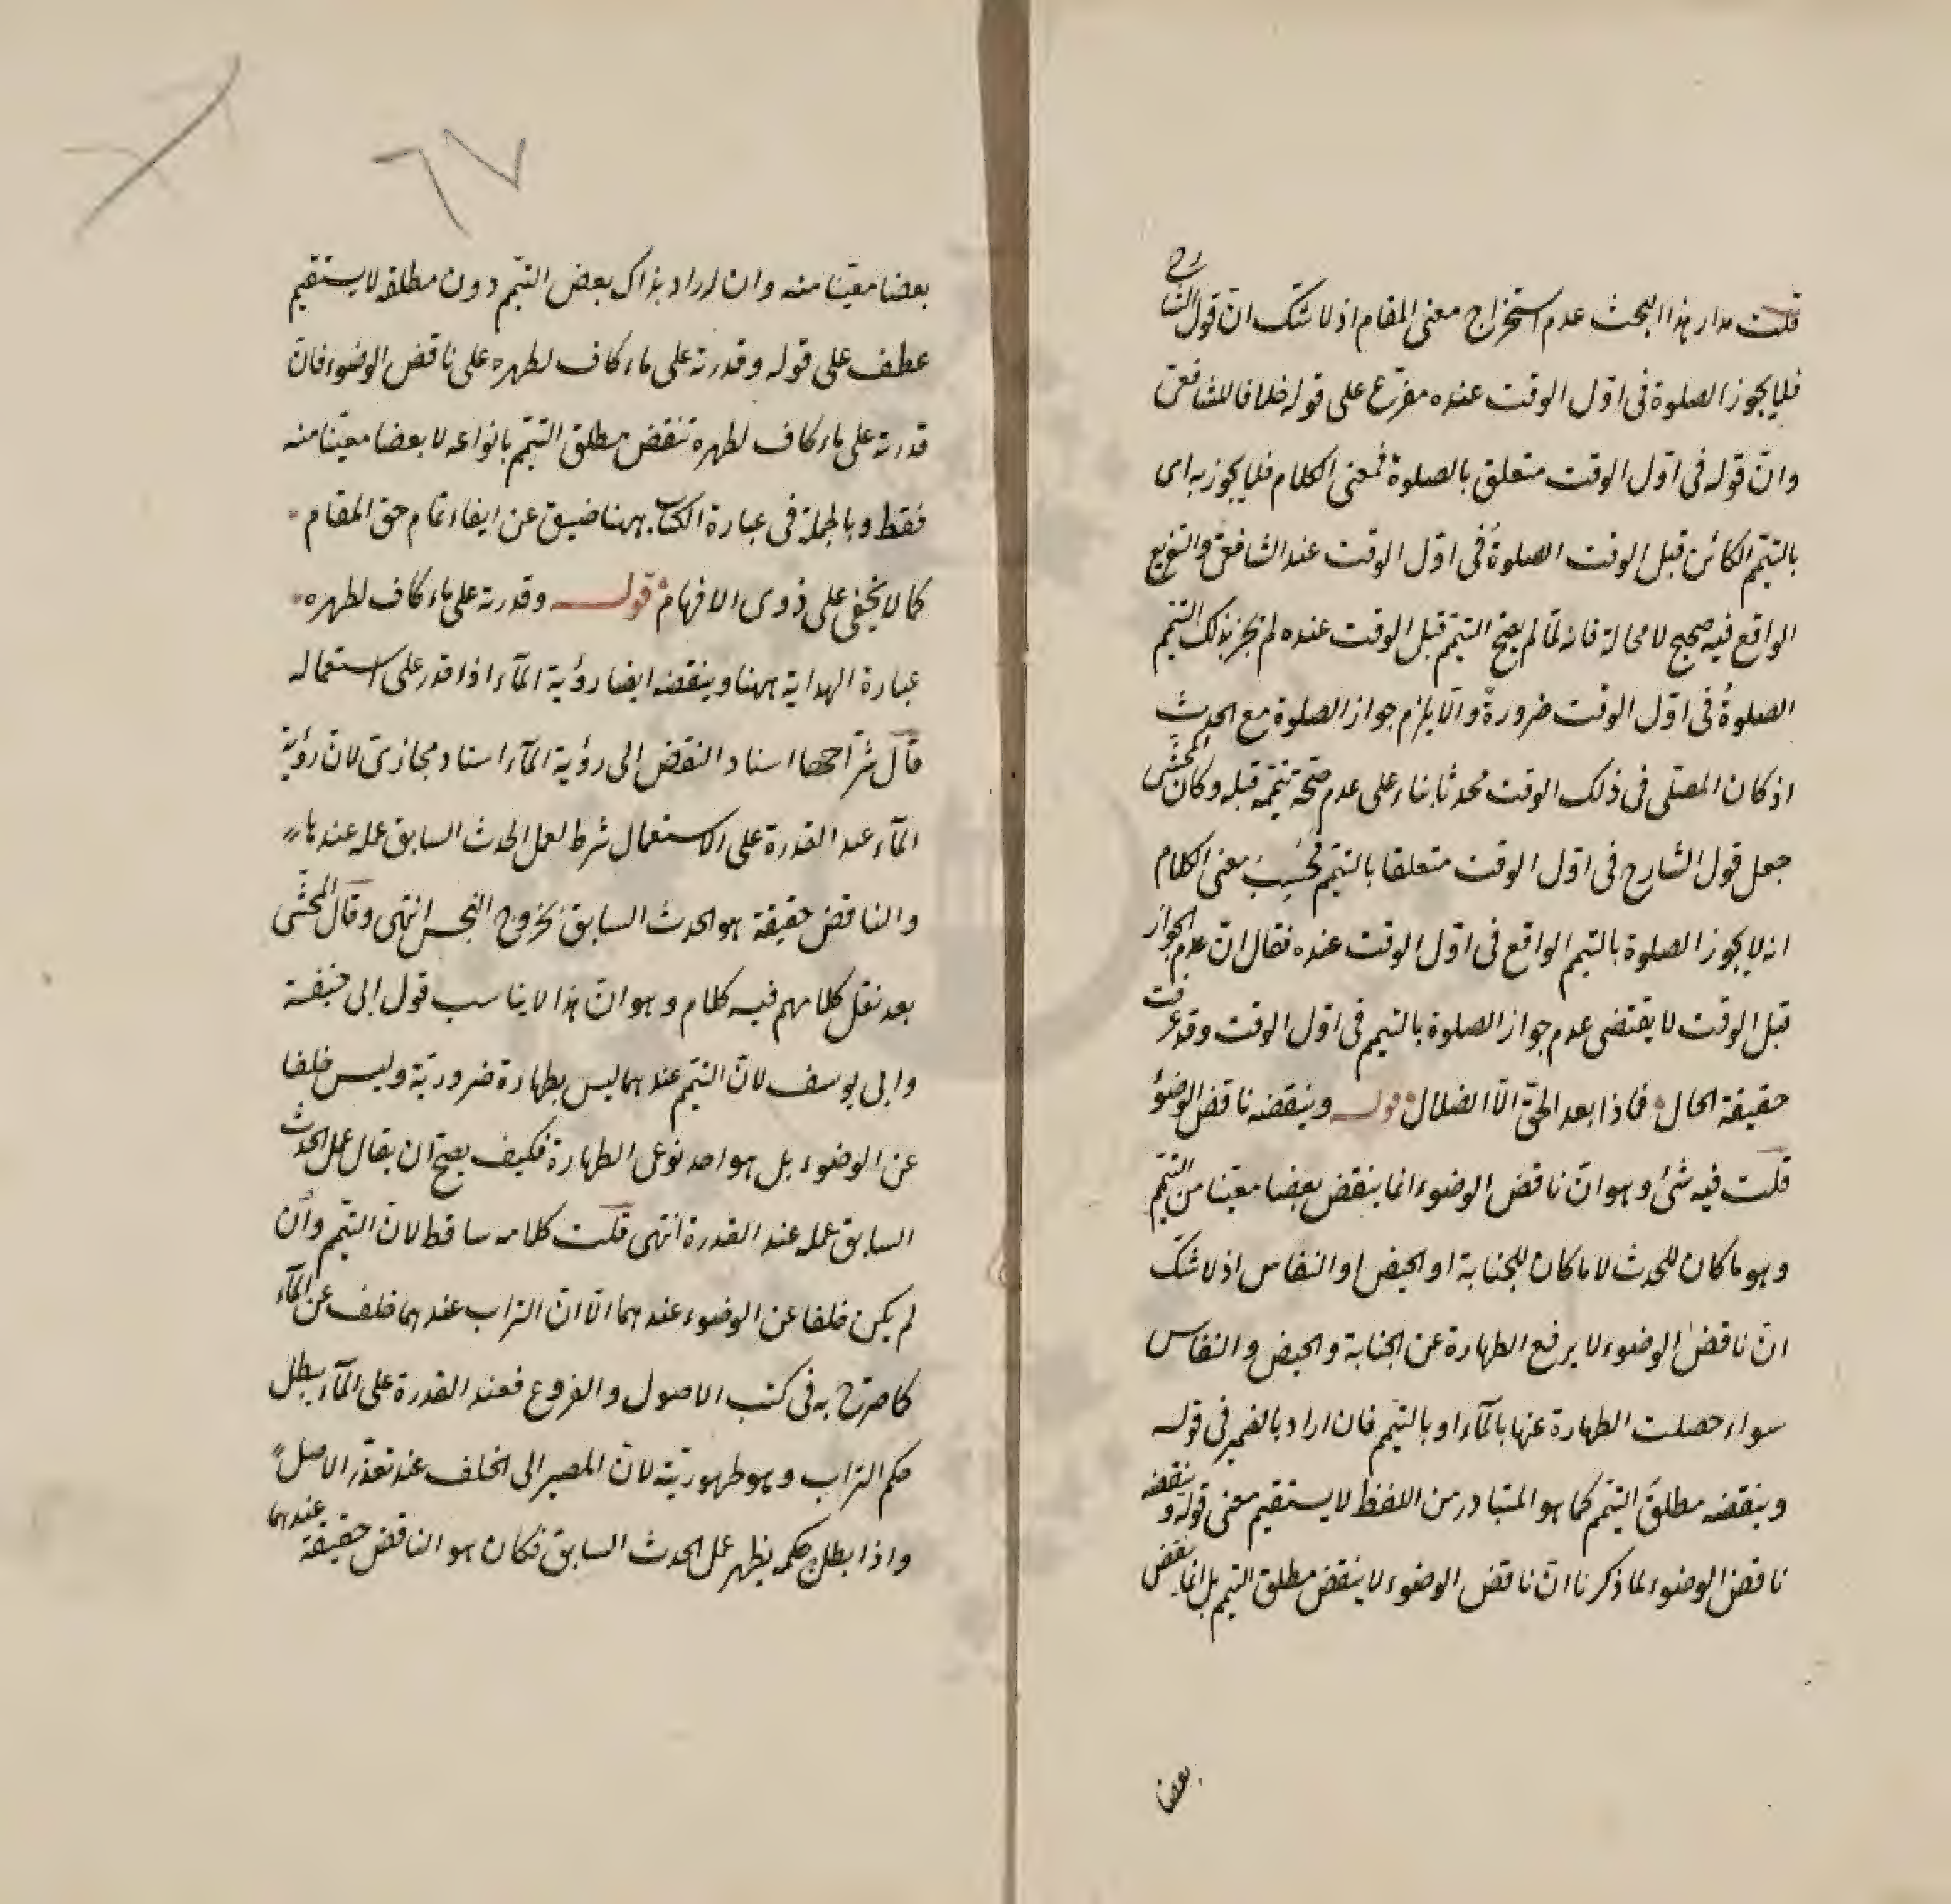 قلت مدار هذا البحث عدم استخراج معنى المقام اذ لا شك ان قول الشارح
فلا يجوز الصلوة فى اول الوقت عنده مفرع على قوله خلافا للشافعى
وان قوله فى اول الوقت متعلق بالصلوة فمعنى الكلام فلا يجوز به اى
بالتيمم الكائن قبل الوقت الصلوة فى اول الوقت عند الشافعى والتفريع
الواقع فيه صحيح لا محالة فانه لما لم يصح التيمم قبل الوقت عنده لم يجز بذلك التيمم
الصلوة فى اول الوقت ضرورة والا يلزم جواز الصلوة مع الحدث
اذ كان المصلى فى ذلك الوقت محدثا بناء على عدم صحة تيممه قبله وكان المحشى
جعل قول الشارح فى اول الوقت متعلقا بالتيمم فحسب معنى الكلام
انه لا يجوز الصلوة بالتيمم الواقع فى اول الوقت عنده فقال ان عدم الجواز
قبل الوقت لا يقتضى عدم جواز الصلوة بالتيمم فى اول الوقت وقد عرفت
حقيقة الحال فماذا بعد الحق الا الضلال قوله وينقضه ناقض الوضوء
قلت فيه شئ وهو ان ناقض الوضوء انما ينقض بعضا معينا من التيمم
وهو ما كان للحدث لا ما كان للجنابة او الحيض او النفاس اذ لا شك
ان ناقض الوضوء لا يرفع الطهارة عن الجنابة والحيض والنفاس
سواء حصلت الطهارة عنها بالماء او بالتيمم فان اراد بالضمير فى قوله
وينقضه مطلق التيمم كما هو المتبادر من اللفظ لا يستقيم معنى قوله وينقضه
ناقض الوضوء لما ذكرنا ان ناقض الوضوء لا ينقض مطلق التيمم بل انما ينقض
بعضا
٦٧
بعضا معينا منه وان اراد بذاك بعض التيمم دون مطلقه لا يستقيم
عطف على قوله وقدرته على ماء كاف لطهره على ناقض الوضوء فان
قدرته على ماء كاف لطهره تنقض مطلق التيمم بانواعه لا بعضا معينا منه
فقط وبالجملة فى عبارة الكتاب ههنا ضيق عن ايفاء تمام حق المقام
كما لا يخفى على ذوى الافهام قوله وقدرته على ماء كاف لطهره
عبارة الهداية ههنا وينقضه ايضا رؤية الماء اذا قدر على استعماله
قال شراحها اسناد النقض الى رؤية الماء اسناد مجازى لان رؤية
الماء عند القدرة على الاستعمال شرط لعمل الحدث السابق عمله عندها
والناقض حقيقة هو الحدث السابق بخروج النجس انتهى وقال المحشى
بعد نقل كلامهم فيه كلام وهو ان هذا لا يناسب قول ابى حنيفة
وابى يوسف لان التيمم عندهما ليس بطهارة ضرورية وليس خلفا
عن الوضوء بل هو احد نوعى الطهارة فكيف يصح ان يقال عمل الحدث
السابق عمله عند القدرة انتهى قلت كلامه ساقط لان التيمم وان
لم يكن خلفا عن الوضوء عندهما الا ان التراب عندهما خلف عن الماء
كما صرح به فى كتب الاصول والفروع فعند القدرة على الماء يبطل
حكم التراب وهو طهوريته لان المصير الى الخلف عند تعذر الاصل
واذا بطل حكمه يظهر عمل الحدث السابق فكان هو الناقض حقيقة عندهما